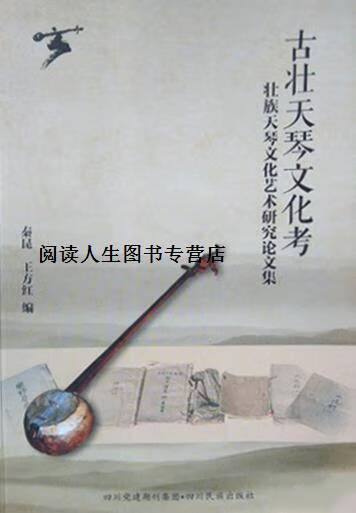 古壮天琴文化考
壮族天琴文化艺术研究论文集
秦昆 王方红 编
阅读人生图书专营店
四川党建期刊集团·四川民族出版社